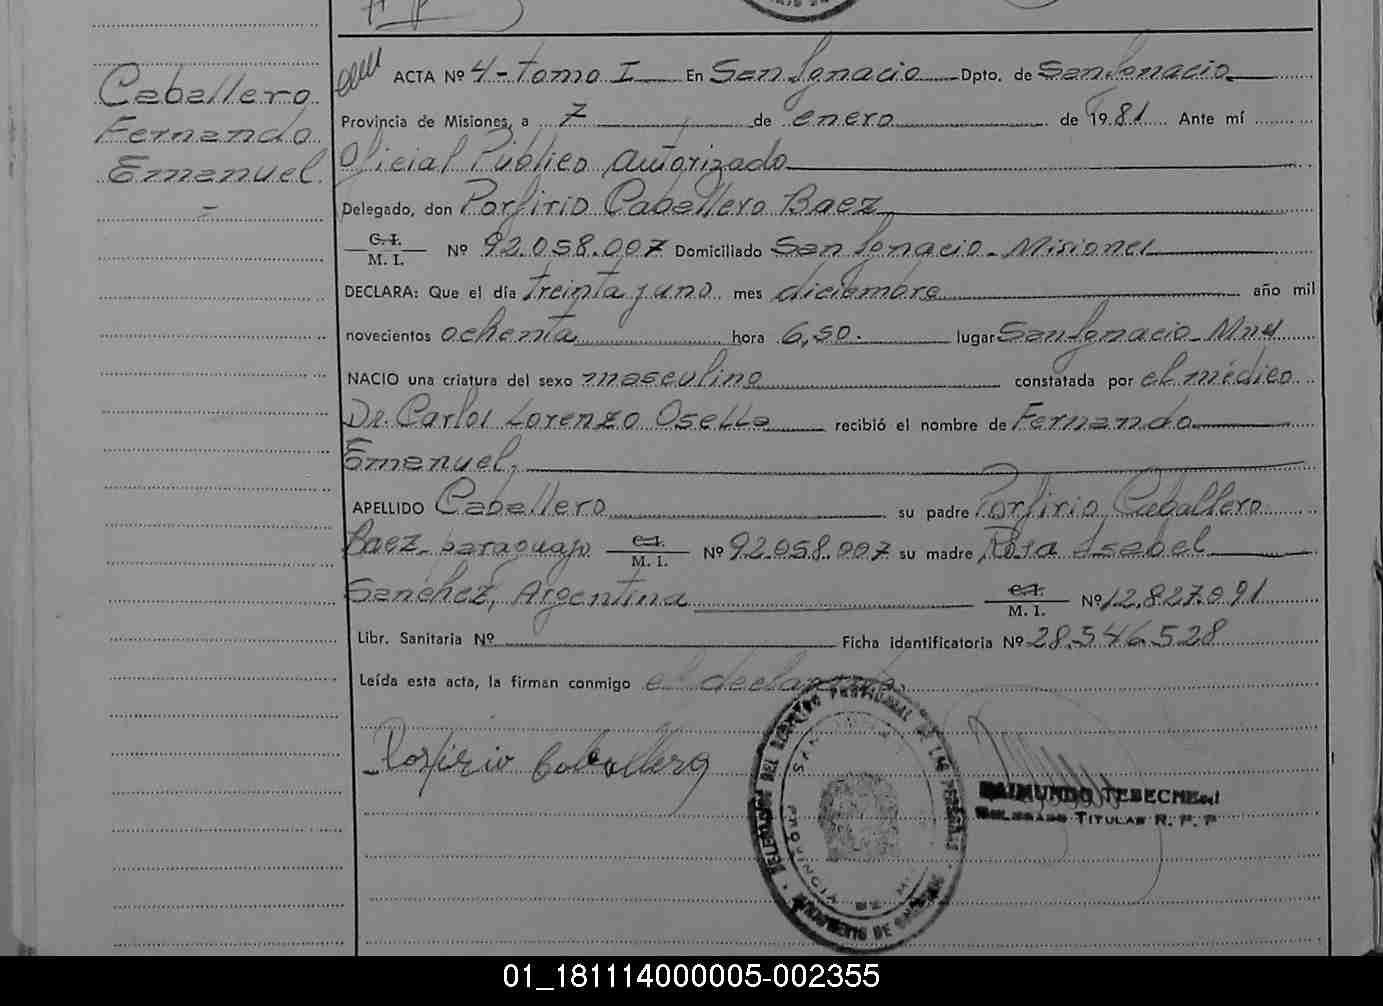 Caballero
Fernando
Emanuel
-
ACTA Nº 4-tomo I En San Ignacio Dpto. de San Ignacio
Provincia de Misiones, a 7 de enero de 1981 Ante mí
Oficial Público autorizado
Delegado, don Porfirio Caballero Baez
C. I.
M. I.
Nº 92.058.007 Domiciliado San Ignacio - Misiones
DECLARA: Que el día treinta y uno mes diciembre año mil
novecientos ochenta hora 6,50. lugar San Ignacio - Mnes
NACIO una criatura del sexo masculino constatada por el médico
Dr. Carlos Lorenzo Osella recibió el nombre de Fernando
Emanuel,
APELLIDO Caballero su padre Porfirio Caballero
Baez, paraguayo C. I. M. I. Nº 92.058.007 su madre Rosa Isabel
Sanchez, Argentina C. I. M. I. Nº 12.827.091
Libr. Sanitaria Nº Ficha identificatoria Nº 28.546.528
Leída esta acta, la firman conmigo el declarante
Porfirio Caballero
DELEGADO DEL REGISTRO PROVINCIAL DE LAS PERSONAS
SAN
PROVINCIA DE
RAIMUNDO TEBECHE
DELEGADO TITULAR R. P. P
01_181114000005-002355